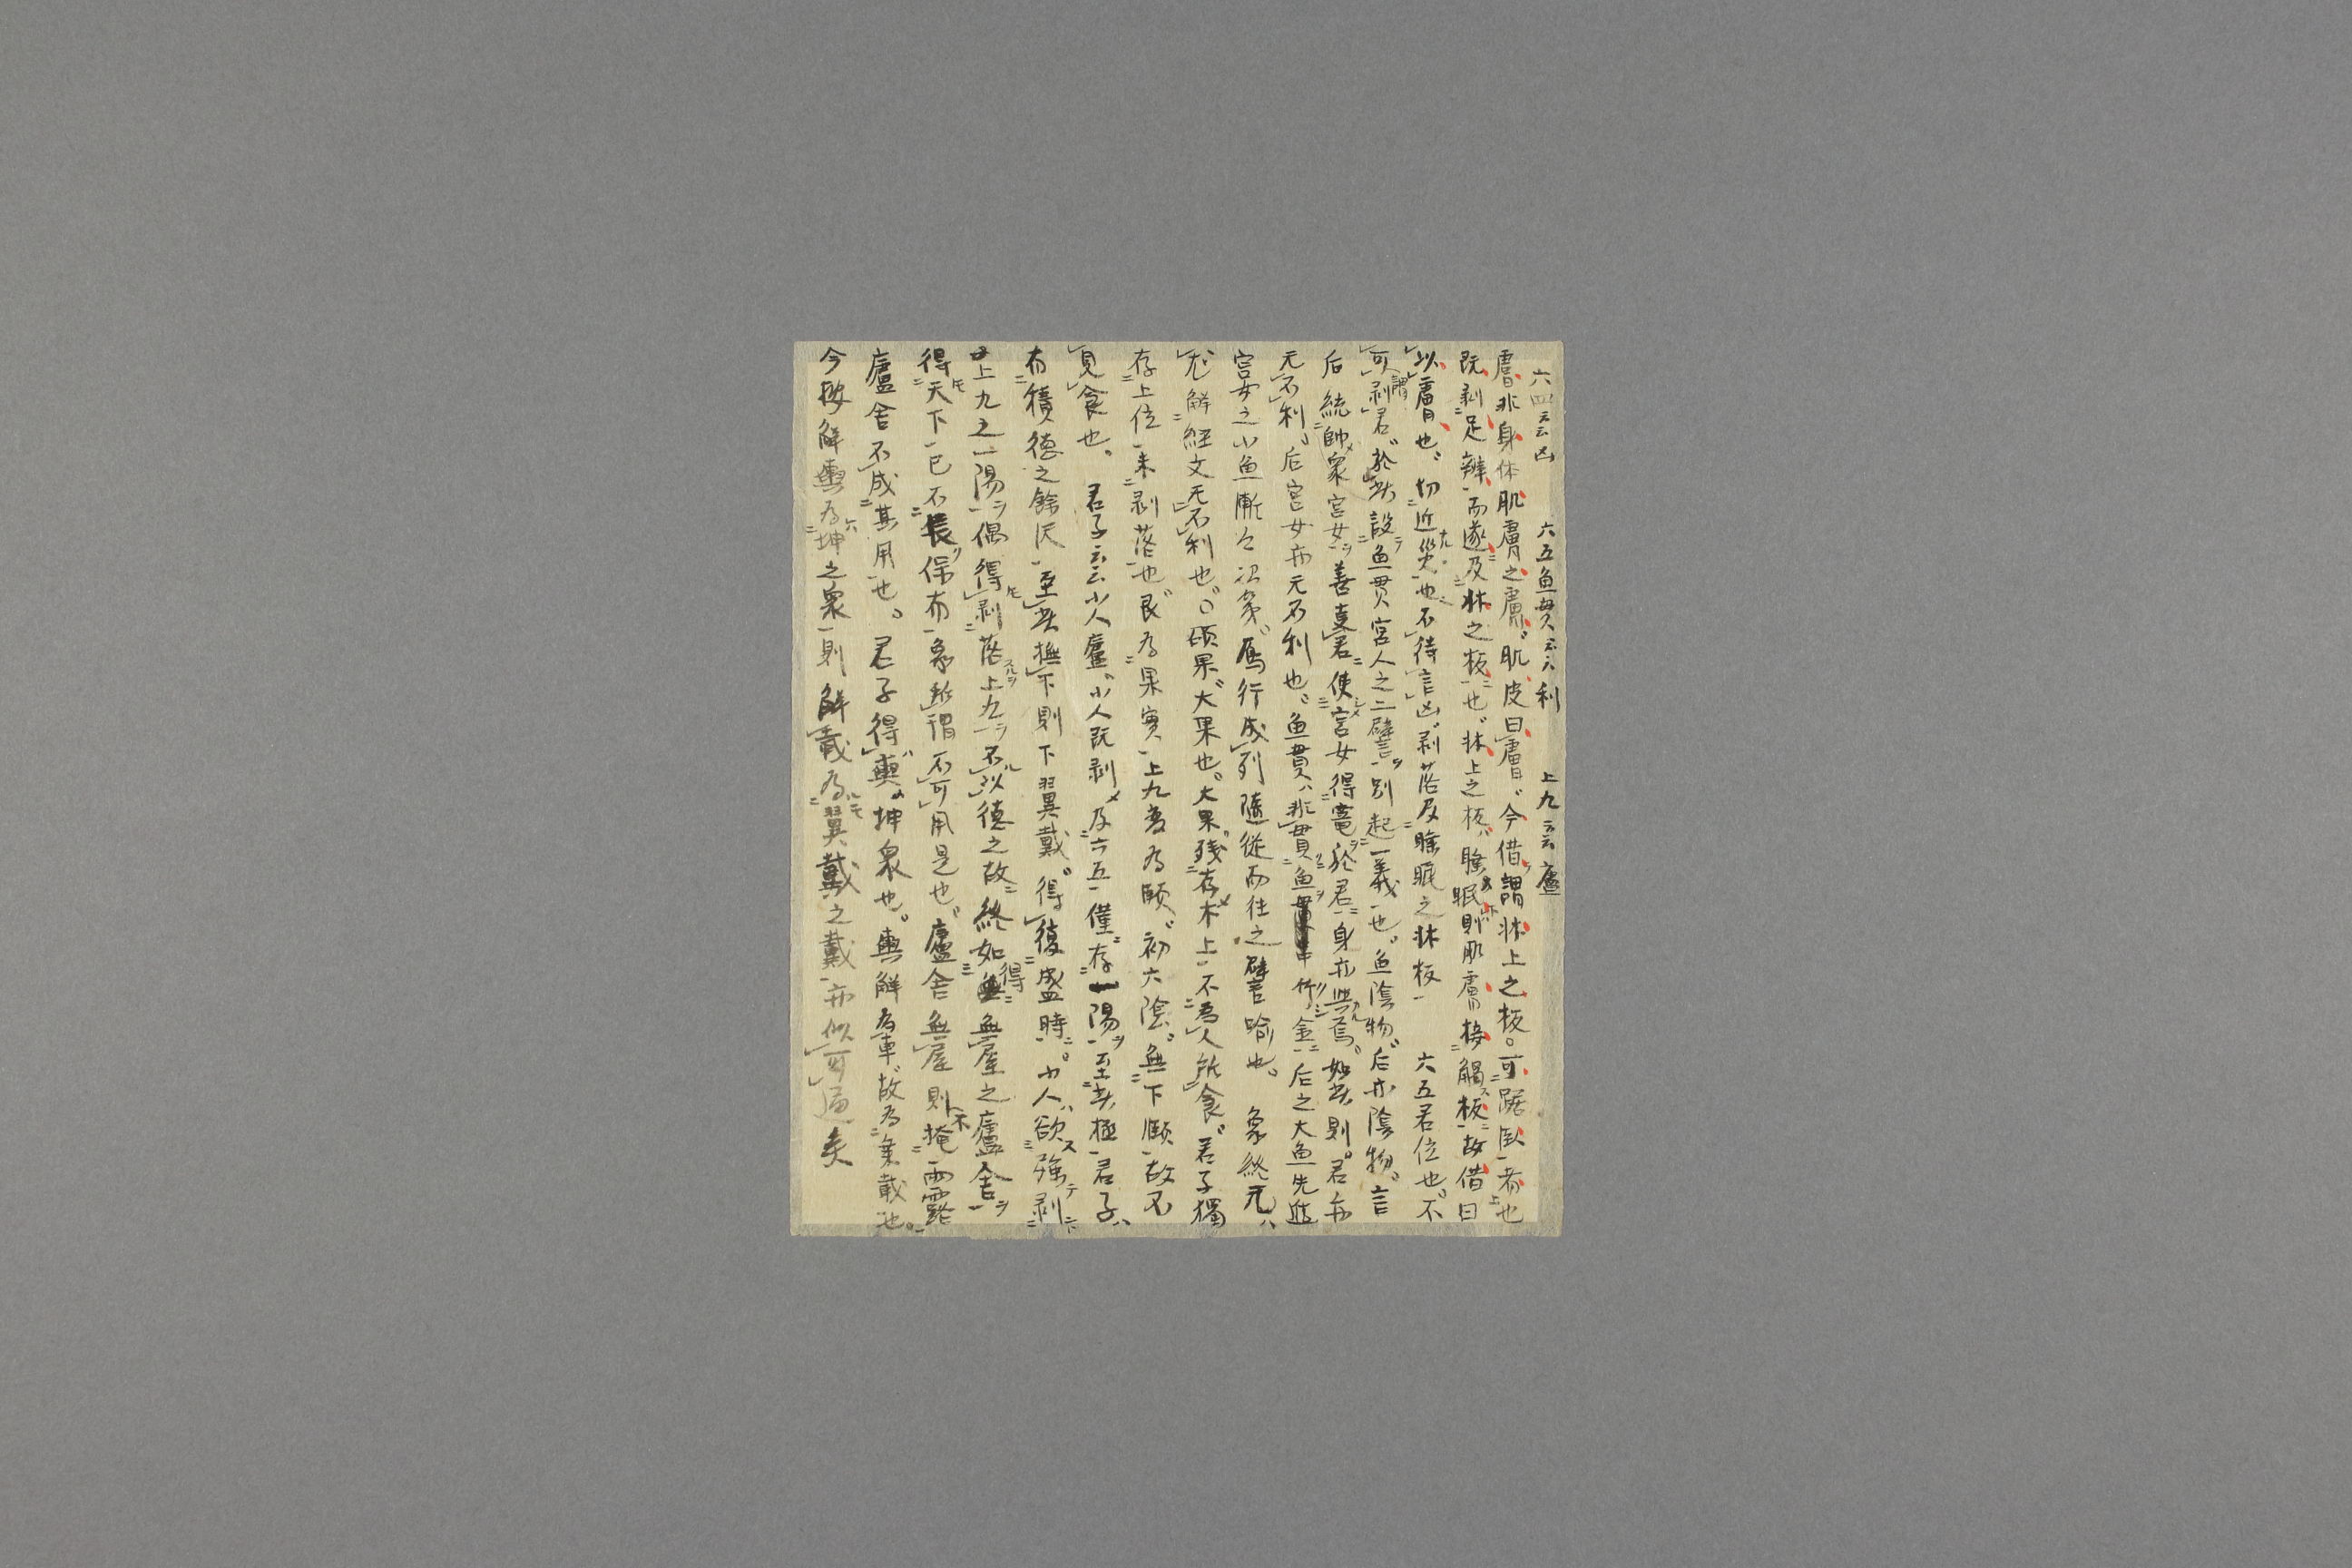 六四云云凶　六五魚貫云云利　上九云云廬
膚非身体肌膚之膚。肌皮曰膚。今借謂牀上之板。可踞臥者也
既剥足辨而遂及牀之板也。牀上之板睡眠則肌膚接觸板故借曰
以膚也。切近災也不待言凶。剥落及睡眠之牀板　六五君位也。不
可謂剥君。於此設魚貫宮人之二譬別起一義也。魚陰物。后亦陰物。言
后統帥衆宮女善直君使宮女得寵於君身亦無焉。如此則君亦
无不利。后宮女亦无不利也。魚貫非貫魚串竹金后之大魚先進
宮女之小魚漸々次第雁行成列随従而往之譬喩也。　象終无
尤解経文无不利也。〇碩果大果也。大果残存木上不為人所食。君子獨
存上位未剥落也艮為果実上九変為頤。初六陰。無下頤故不
見食也。　君子云云小人廬。小人既剥及六五僅存一陽至此極君子
有積徳之餘沢至此極下則下翼戴。得復盛時。小人欲強剥
上九之一陽偶得剥落上九不以徳之故終如得無屋之廬舎
得天下已不長保有象所謂不可用是也。廬舎無屋則不掩雨露
廬舎不成其用也。君子得輿坤衆也。輿解為車故為乗載也。
今按解輿為坤之衆則解載為翼戴之戴亦似可通矣